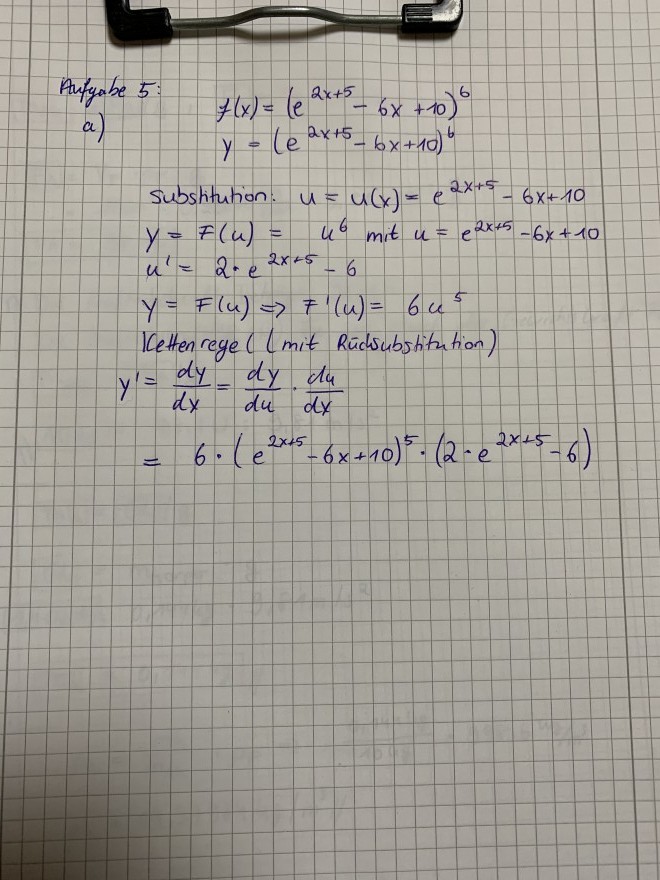 Aufgabe 5:
a)
f(x) = (e^{2x+5} - 6x + 10)^6
y = (e^{2x+5} - 6x + 10)^6
Substitution: u = u(x) = e^{2x+5} - 6x + 10
y = F(u) = u^6 mit u = e^{2x+5} - 6x + 10
u' = 2 · e^{2x+5} - 6
y = F(u) => F'(u) = 6u^5
Kettenregel (mit Rücksubstitution)
y' = dy/dx = dy/du · du/dx
= 6 · (e^{2x+5} - 6x + 10)^5 · (2 · e^{2x+5} - 6)